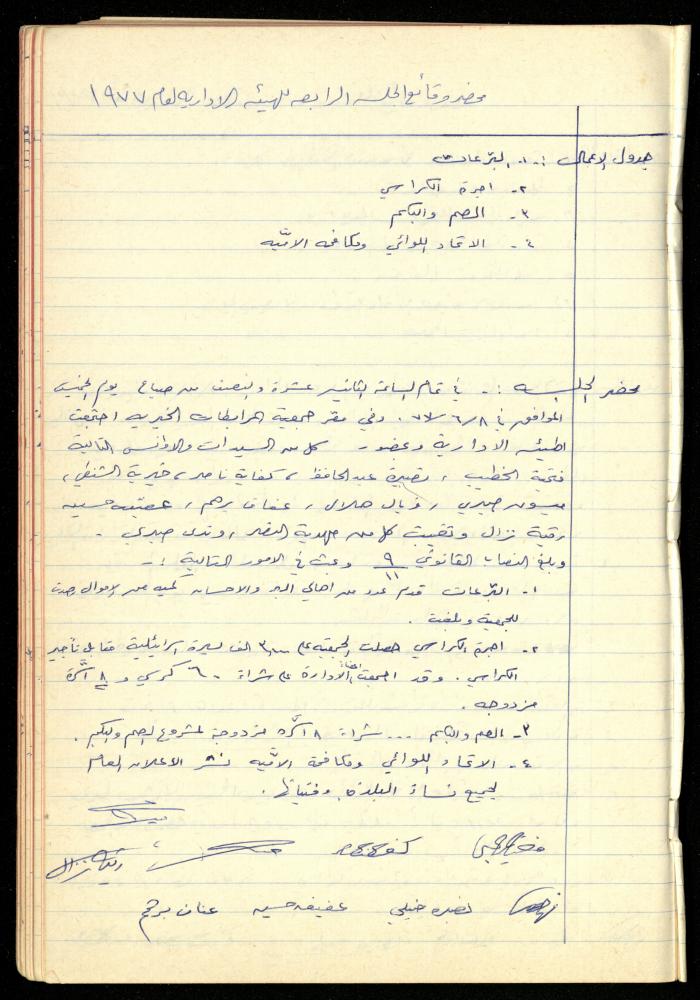 محضر وقائع الجلسه الرابعه للهيئه الاداريه لعام ١٩٧٧
جدول الاعمال :- ١- التبرعات
٢- اجرة الكراسي
٣- الصم والبكم
٤- الاتحاد اللوائي ومكافحه الاميّه
محضر الجلسه :- في تمام الساعة الثانيه عشرة والنصف من صباح يوم الخميس
الموافق في ٧٧/٦/٨ وفي مقر جمعية المرابطات الخيريه اجتمعت
الهيئه الادارية وبحضور كل من السيدات والاوانس التالية
فتحية الخطيب ، نصيرة عبد الحافظ ، كفاية ناصر ، خيرية الشنطي ،
ميسون صبري ، فريال هلال ، عفاف برهم ، عفيفه حسين
رقية نزال وتغيبت كل من مهدية النصر ، وندى صبري .
وبلغ النصاب القانوني ٩/١١ وبحث في الامور التالية :-
١- التبرعات قدم عدد من اهالي البر والاحسان كميه من الاموال
للجمعية وبلغت .
٢- اجرة الكراسي حصلت الجمعيه على الف ليرة اسرائيلية مقابل تأجير
الكراسي . وقد اجمعت الادارة على شراء ٦٠ كرسي و ٨ أسّرة
مزدوجه .
٣- الصم والبكم ... شراء ٨ اسّره مزدوجة لمشروع الصم والبكم .
٤- الاتحاد اللوائي ومكافحة الاميّه نشر الاعلان العام
لجميع نساء البلدة وفتياتها .
رقية نزال
عفيفه حسين عفاف برهم